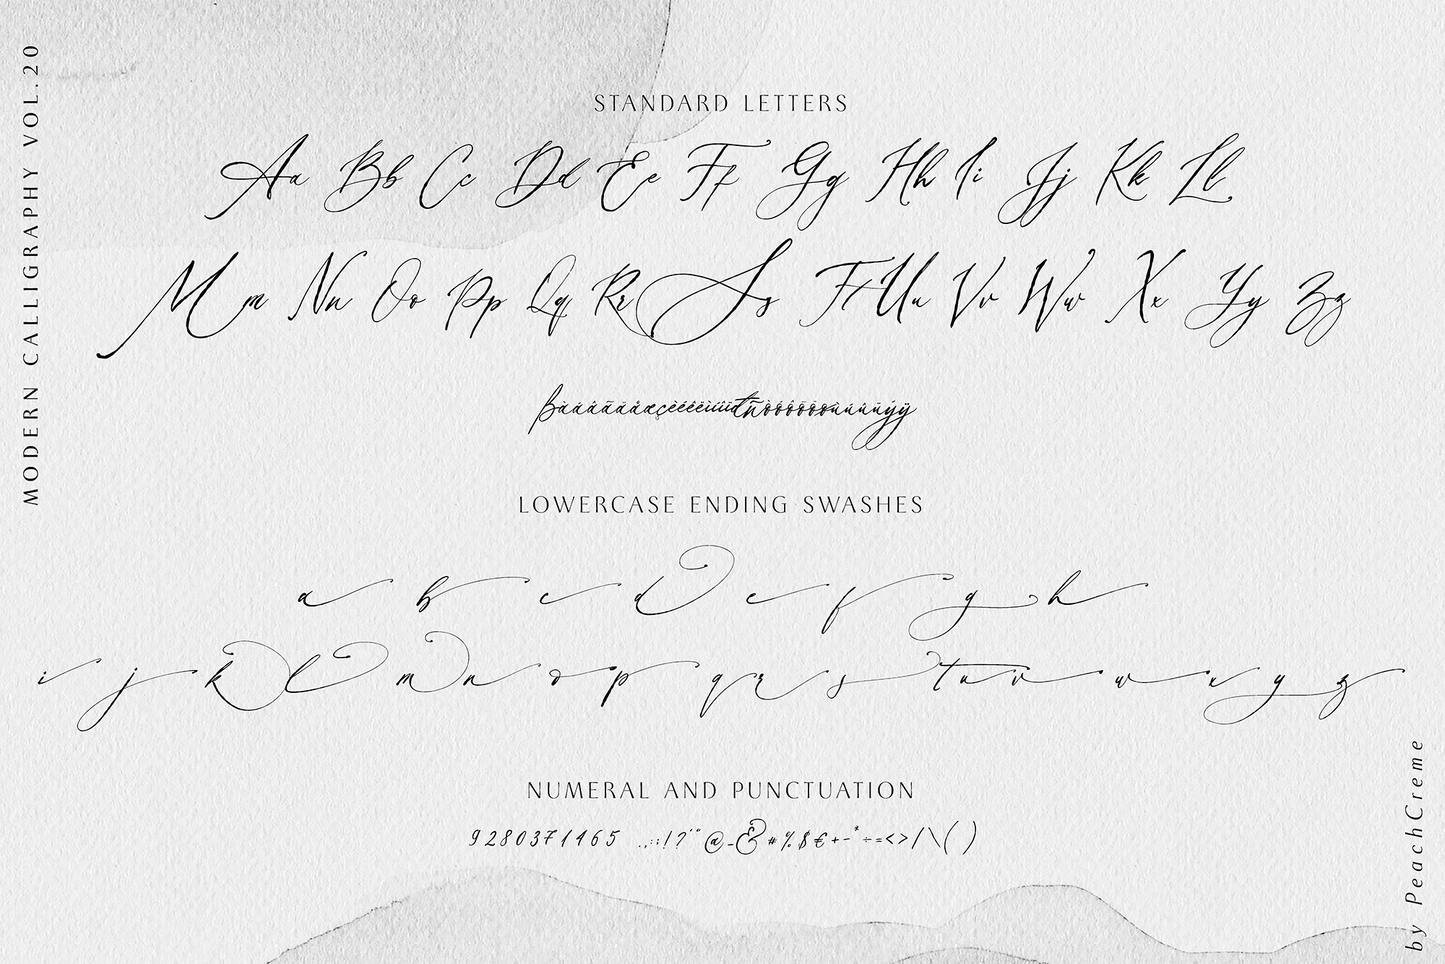 MODERN CALLIGRAPHY VOL.20
STANDARD LETTERS
Aa Bb Cc Dd Ee Ff Gg Hh Ii Jj Kk Ll
Mm Nn Oo Pp Qq Rr Ss Tt Uu Vv Ww Xx Yy Zz
LOWERCASE ENDING SWASHES
a b c d e f g h
i j k l m n o p q r s t u v w x y z
NUMERAL AND PUNCTUATION
9280371465 .,:;!?'" @_&#%$€+-*÷=<>/\()
by PeachCreme